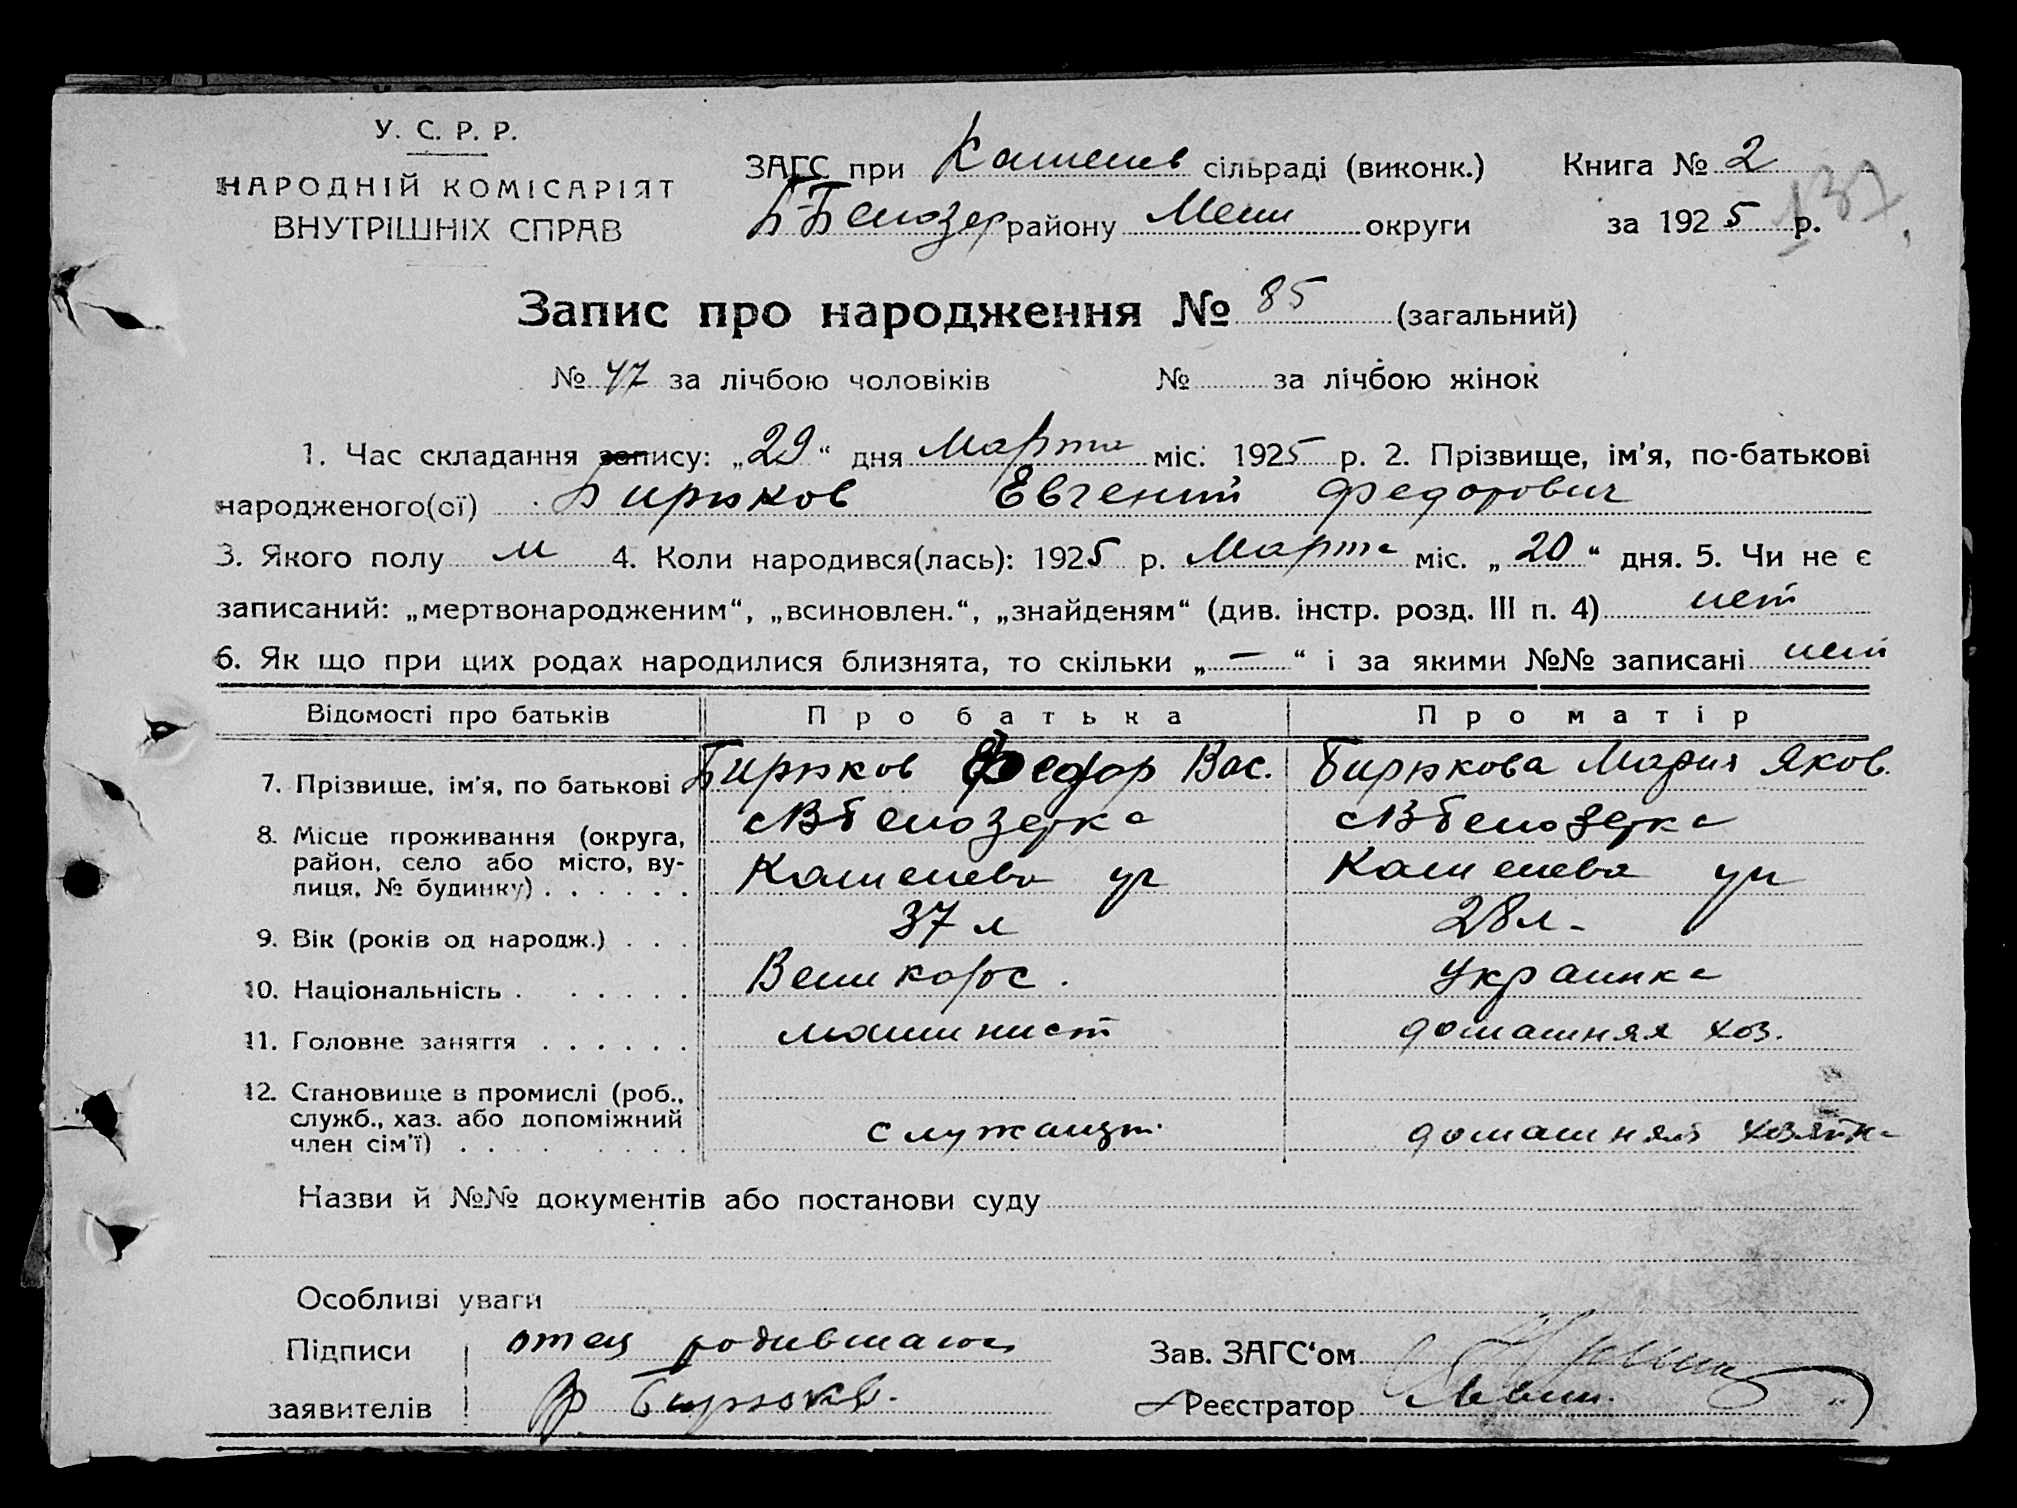 У. С. Р. Р.
НАРОДНІЙ КОМІСАРІЯТ
ВНУТРІШНІХ СПРАВ
ЗАГС при Каменев сільраді (виконк.)
Б-Белозер району Мели округи
Книга № 2
за 1925 р.
137
Запис про народження № 85 (загальний)
№ 47 за лічбою чоловіків № за лічбою жінок
1. Час складання запису: „29“ дня Марта міс. 1925 р. 2. Прізвище, ім'я, по-батькові
народженого(ої) Бирюков Евгений Федорович
3. Якого полу м 4. Коли народився(лась): 1925 р. Марта міс. „20“ дня. 5. Чи не є
записаний: „мертвонародженим“, „всиновлен.“, „знайденям“ (див. інстр. розд. III п. 4) нет
6. Як що при цих родах народилися близнята, то скільки „—“ і за якими №№ записані нет
Відомості про батьків Про батька Про матір
7. Прізвище, ім'я, по батькові Бирюков Федор Вас. Бирюкова Мария Яков.
8. Місце проживання (округа, район, село або місто, вулиця, № будинку)
Белозерка Белозерка
Каменева Каменева
9. Вік (років од народж.) 37 л 28 л.
10. Національність Великорос. Украинка
11. Головне заняття машинист домашняя хоз.
12. Становище в промислі (роб., служб., хаз. або допоміжний член сім'ї) служащ. домашняя хозяйка
Назви й №№ документів або постанови суду
Особливі уваги
Підписи отец родившагося
заявителів Ф Бирюков.
Зав. ЗАГС'ом
Реєстратор